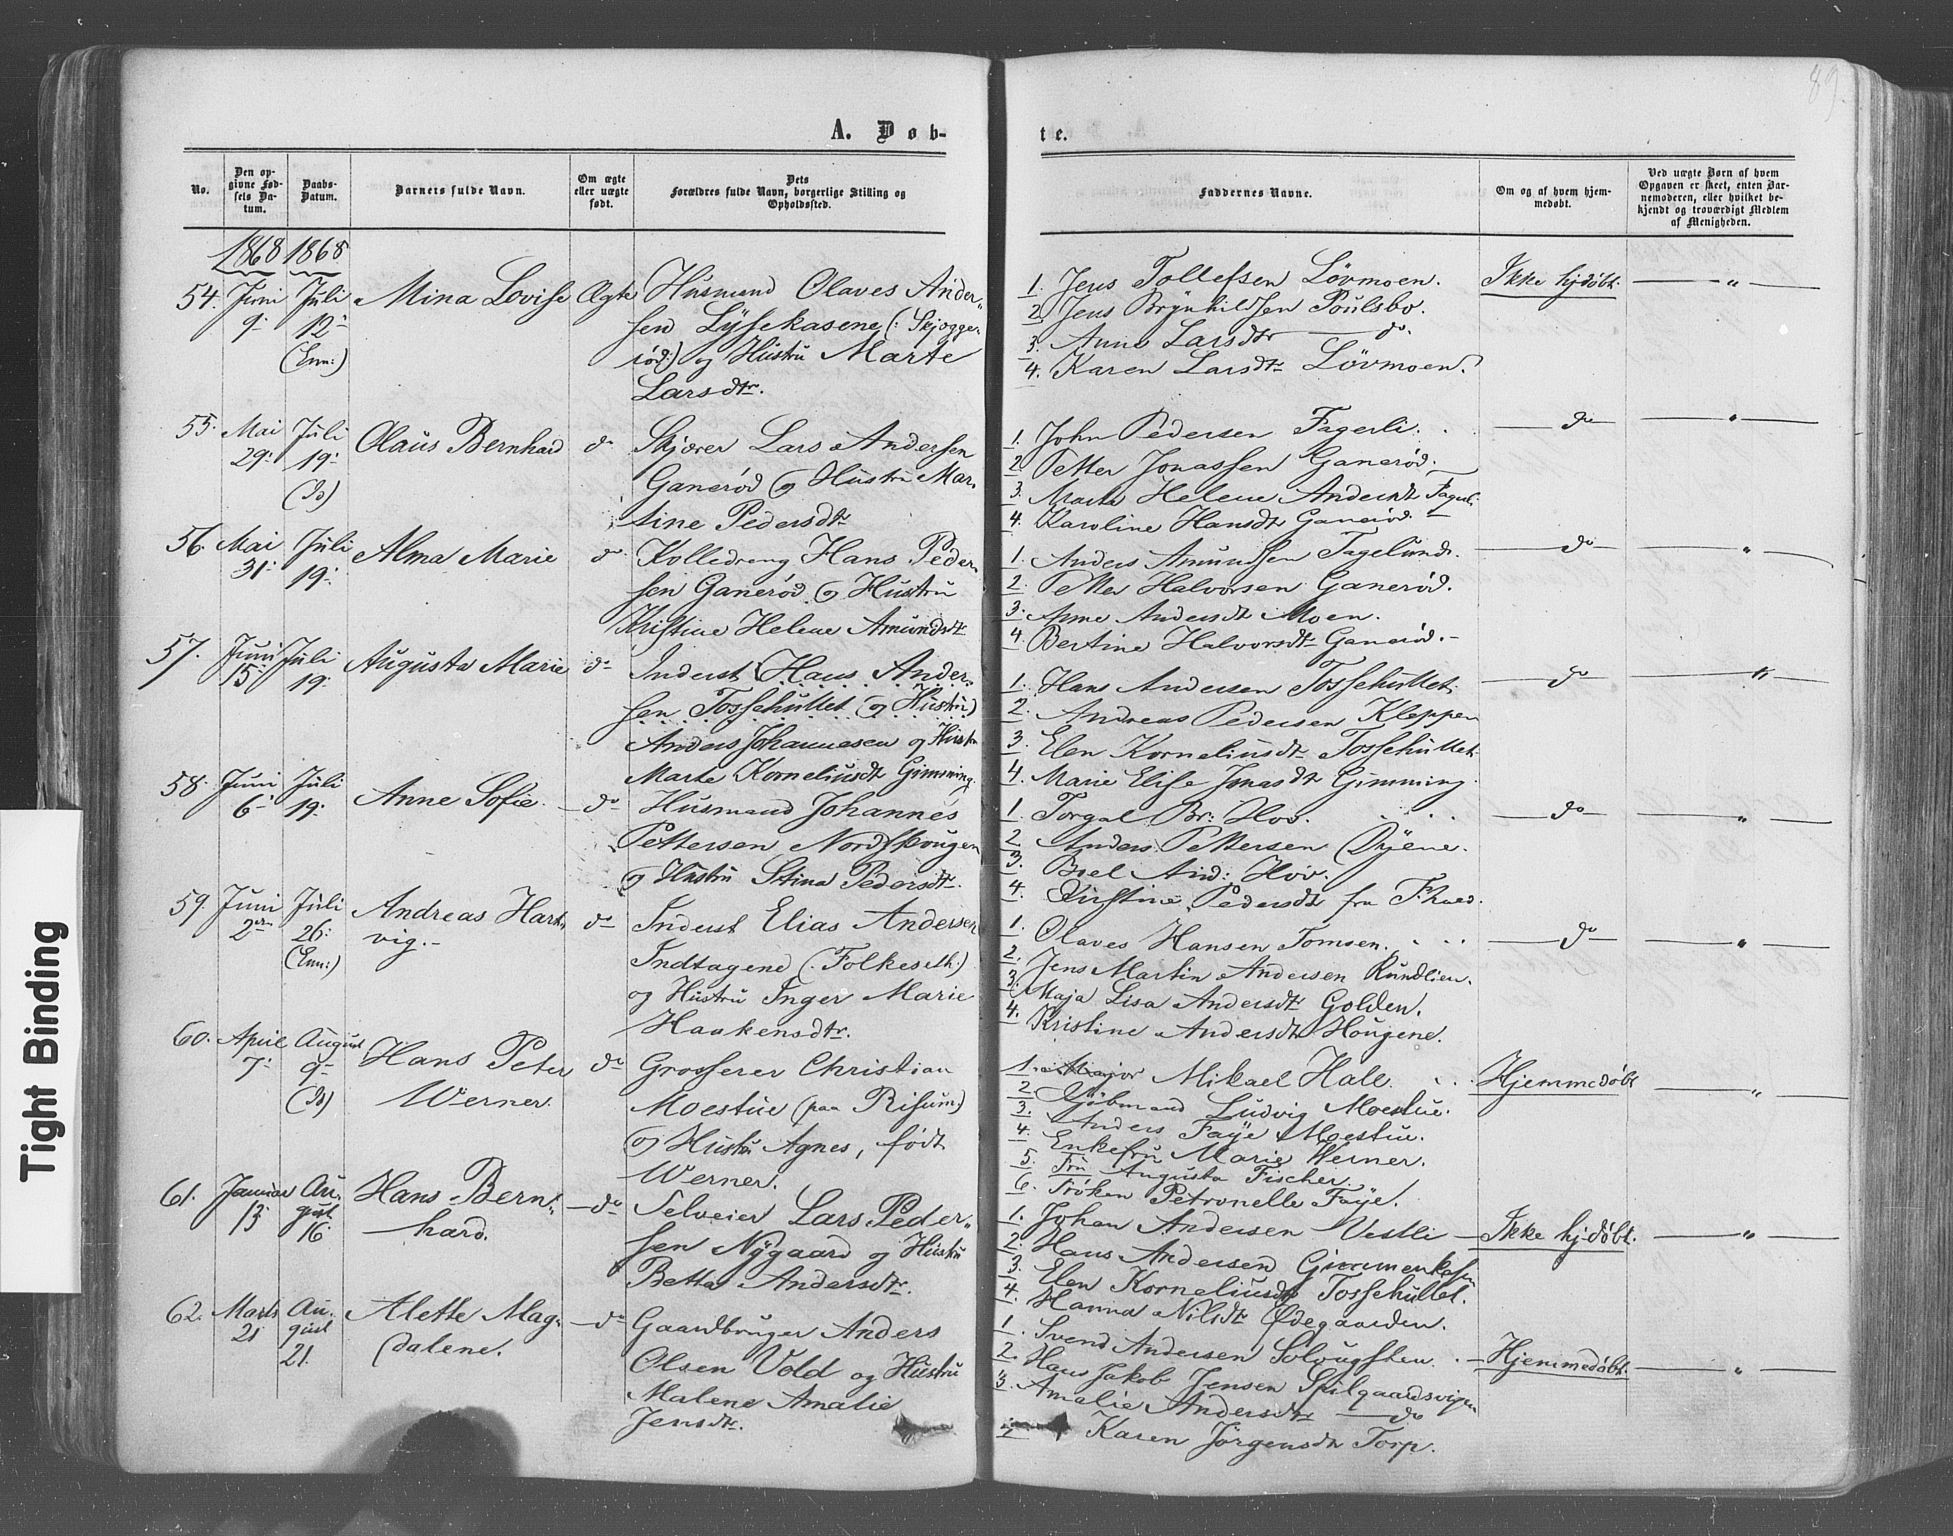 89.
A. Døb-
te.
No.
Den op-
givne Fød-
sels Da-
tum.
Daabs-
Datum.
Barnets fulde Navn.
Om ægte
eller uægte
født.
Dets
Forældres fulde Navn, borgerlige Stilling og
Opholdssted.
Faddernes Navne.
Om og af hvem hjem-
medøbt.
Ved uægte Børn af hvem
Opgaven er skeet, enten Bar-
nemoderen, eller hvilket be-
kjendt og troværdigt Medlem
af Menigheden.
1868 1868
54. Juni 9. Juli 12. (Enn:) Mina Lovise Ægte
Husmand Olaves Ander-
sen Lysekasene (: Skjogge-
rød:) og Hustru Marte
Larsdtr.
1. Jens Tollefsen Lövmoen.
2. Jens Brynhildsen Poulsbo.
3. Anne Larsdtr do.
4. Karen Larsdtr Lövmoen.
Ikke hjdøbt. — " —
55. Mai 29. Juli 19. (Do) Olaus Bernhard do
Skjærer Lars Andersen
Ganerød og Hustru Mar-
tine Pedersdtr
1. John Pedersen Fagerli.
2. Petter Jonassen Ganerød.
3. Marte Helene Andersdt Fagerl.
4. Karoline Hansdt Ganerød.
— do — — " —
56. Mai 31. Juli 19. Alma Marie do
Kolledreng Hans Peder-
sen Ganerød og Hustru
Kristine Helene Amundsdtr
1. Anders Amundsen Fagelund.
2. Petter Halvorsen Ganerød.
3. Anne Andersdt Moen.
4. Bertine Halvorsdtr Ganerød.
— do — — " —
57. Juni 15. Juli 19. Augusta Marie do
Inderst (Hans Ander-
sen Tossehullet og Hustru)
Anders Johannesen og Hustru
Marte Korneliusdt Gimming
1. Hans Andersen Tossehullet.
2. Andreas Pedersen Kleppen
3. Elen Korneliusdt Tossehullet
4. Marie Elise Jonasdt Gimming.
— do — — " —
58. Juni 6. Juli 19. Anne Sofie. — do
Husmand Johannes
Pettersen Nordskougen
og Hustru Stina Pedersdtr.
1. Torgal Br: Hov.
2. Anders Pettersen Øyene.
3. Boel And: Hov.
4. Kirstine Pedersdt fra
— do — — " —
59. Juni 2den Juli 26. (Enn:) Andreas Hart-
vig. do
Inderst Elias Andersen
Indtagene (: Folkeseth:)
og Hustru Inger Marie
Haakensdtr.
1. Olaves Hansen Tomsen.
2. Jens Martin Andersen Rundlien.
3. Maja Lisa Andersdtr Golden.
4. Kristine Andersdt Hougene.
— do — — " —
60. April 7. August 9. (Do) Hans Peter
Werner. do
Grosserer Christian
Moestue (paa Risum)
og Hustru Agnes, født
Werner.
1. Major Mikael Hale.
2. Kjøbmand Ludvig Moestue.
3. Anders Faye Moestue.
4. Enkefru Marie Werner.
5. Fru Augusta Fischer.
6. Frøken Petronelle Faye.
Hjemmedøbt — " —
61. Januar 13 August 16. Hans Bern-
hard. — do
Selveier Lars Peder-
sen Nygaard og Hustru
Betta Andersdtr.
1. Johan Andersen Vestli
2. Hans Andersen Gimmenkasen
3. Elen Korneliusdt Tossehullet.
4. Hanna Nilsdtr Ødegaarden.
— Ikke hjdøbt. — " —
62. Marts 21 August 21. Alette Mag-
dalene. — do
Gaardbruger Anders
Olsen Vold og Hustru
Malene Amalie
Jensdtr.
1. Svend Andersen
2. Hans Jakob Jensen Spilgaardsvigen
3. Amalie Andersdtr — do
Karen Jørgensdt Torp.
— Hjemmedøbt. — " —
Tight Binding